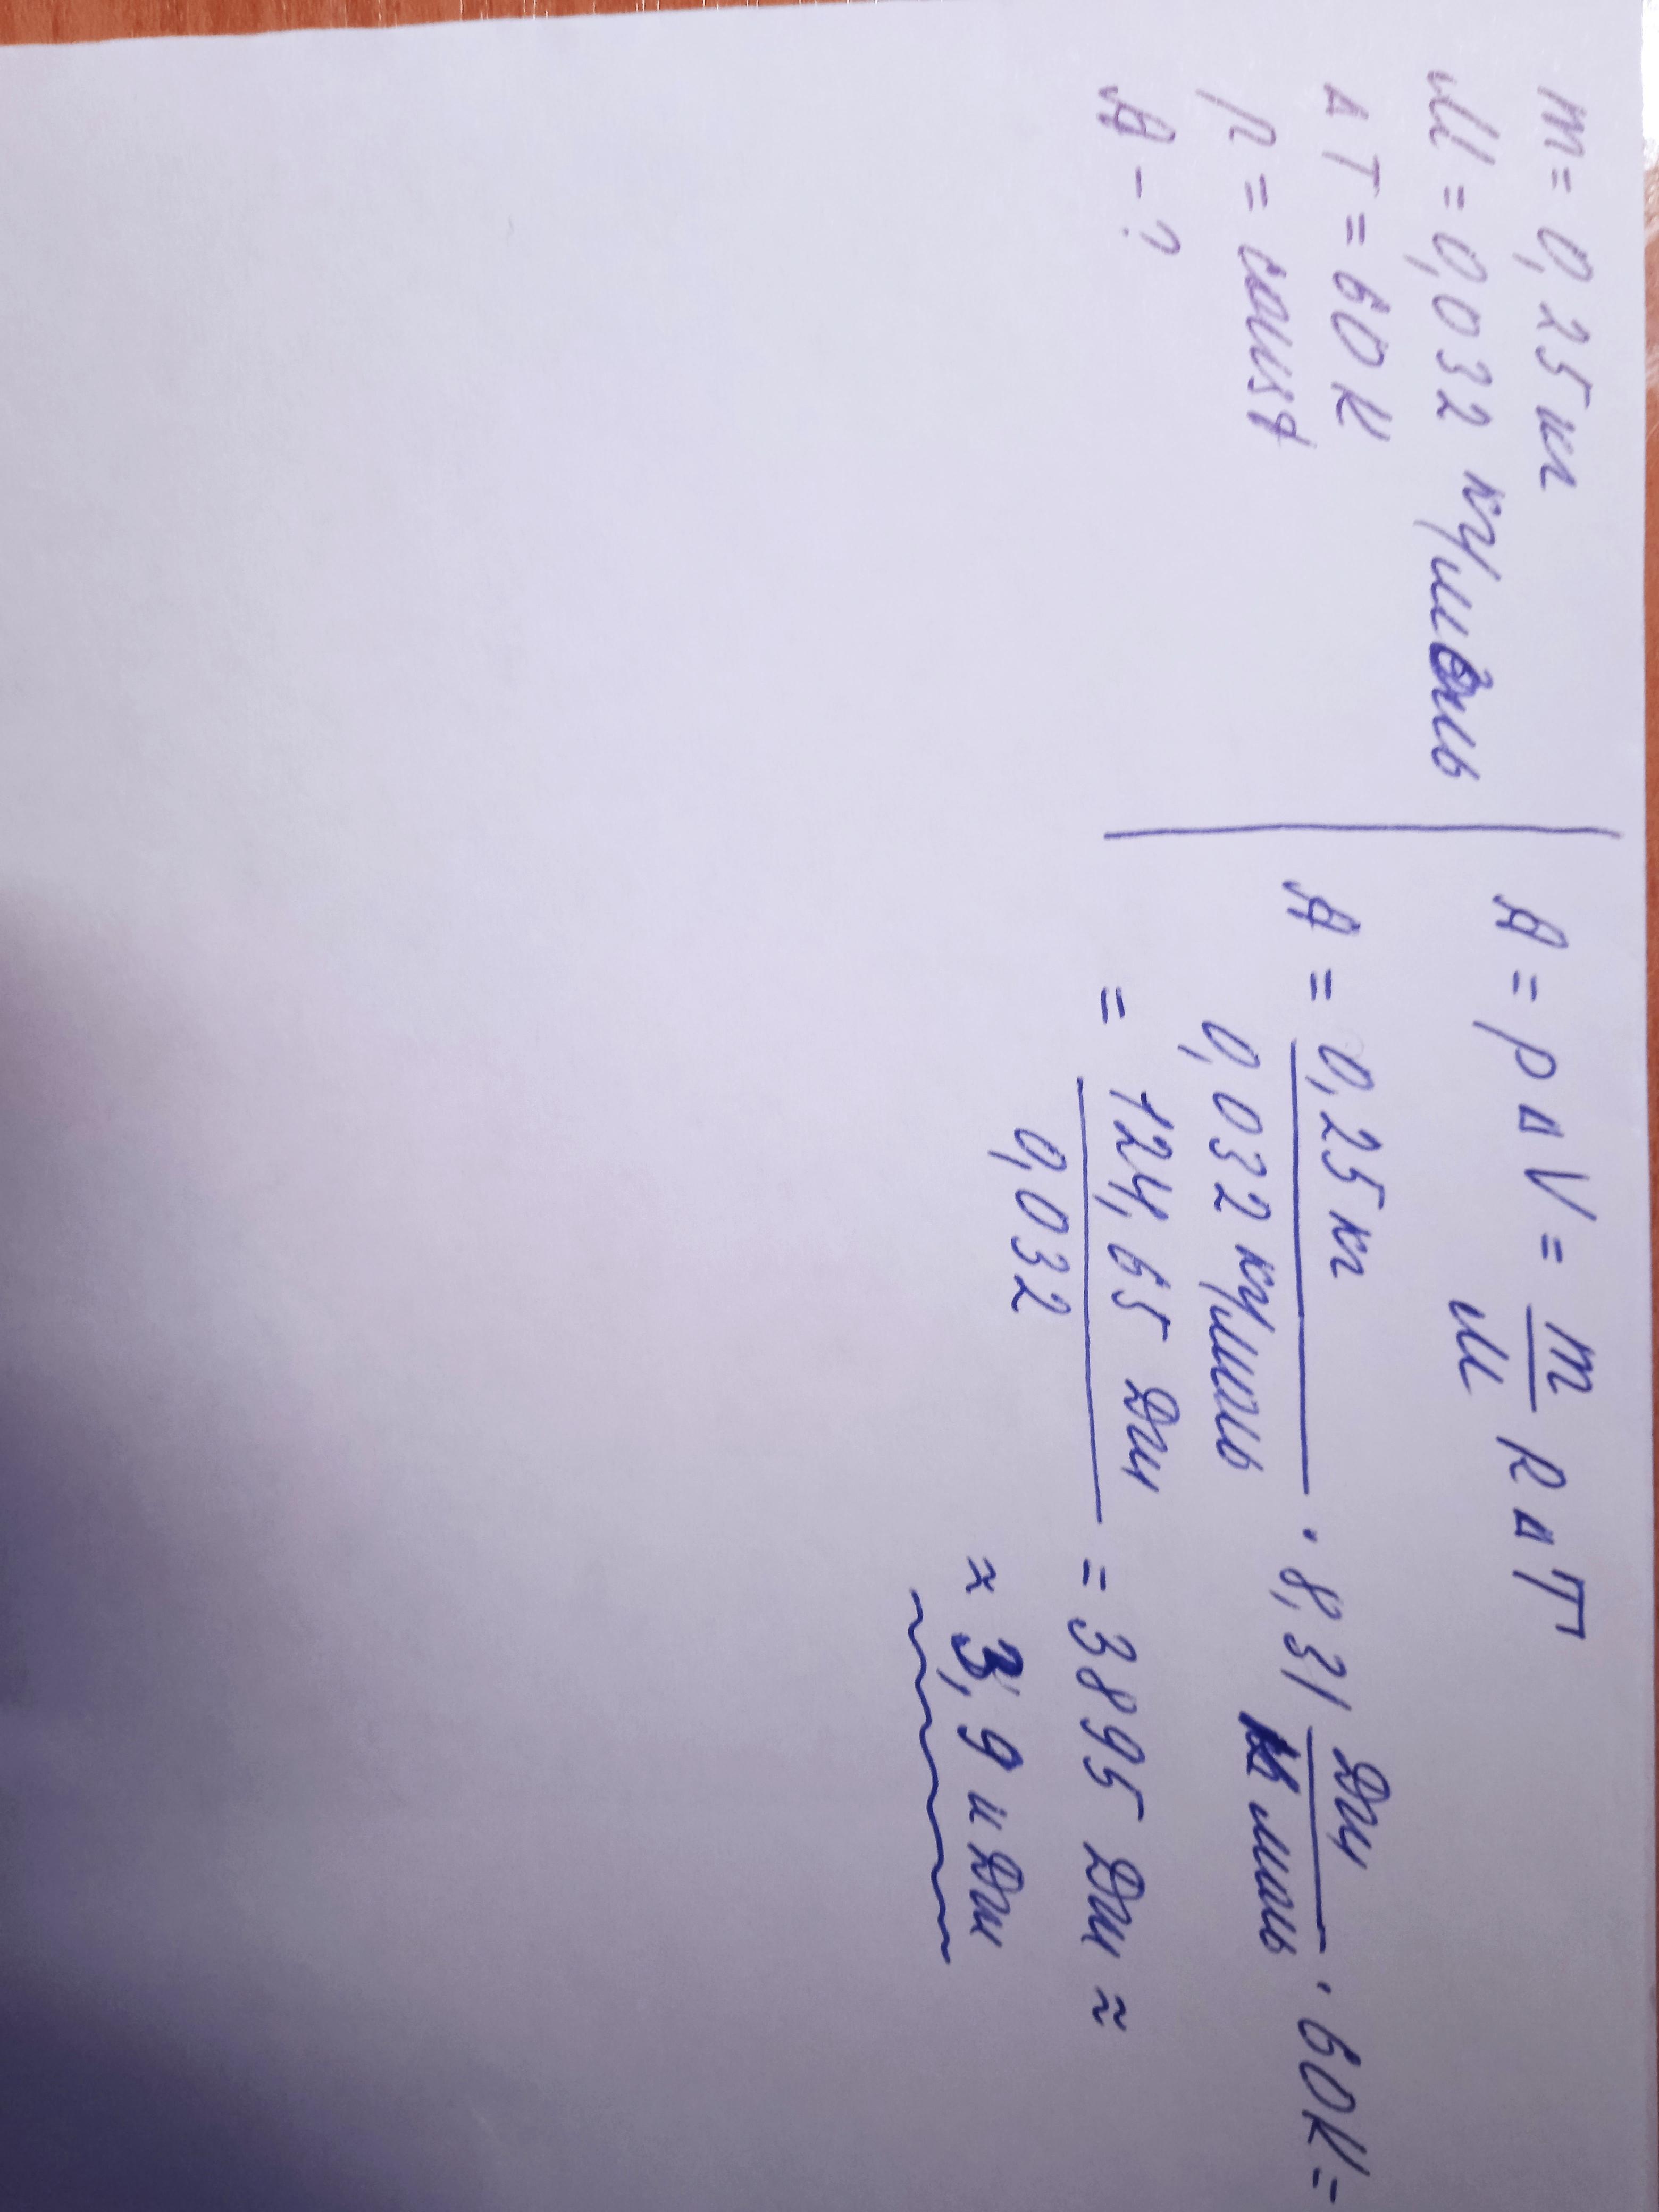 m = 0,25 кг
M = 0,032 кг/моль
ΔT = 60 К
p = const
A - ?
A = p Δ V = m/M R Δ T
A = 0,25 кг / 0,032 кг/моль · 8,31 Дж / К моль · 60К =
= 124,65 Дж / 0,032 = 3895 Дж ≈
≈ 3,9 кДж